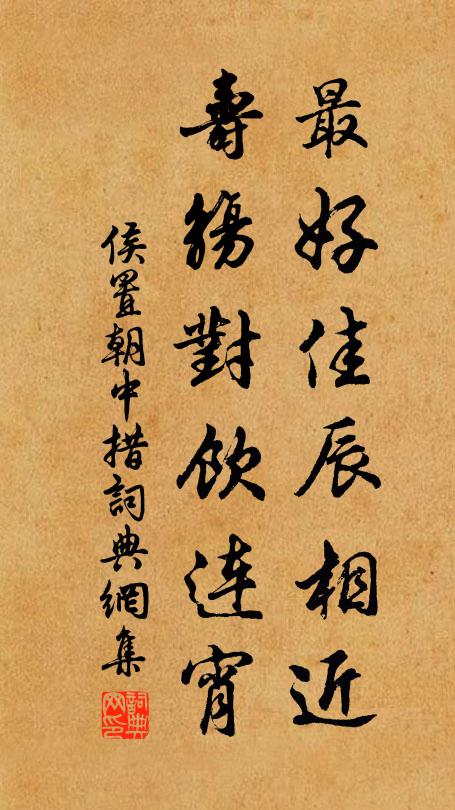 最好佳辰相近
壽觴對飲連宵
侯置朝中措詞典網集
詞典网印